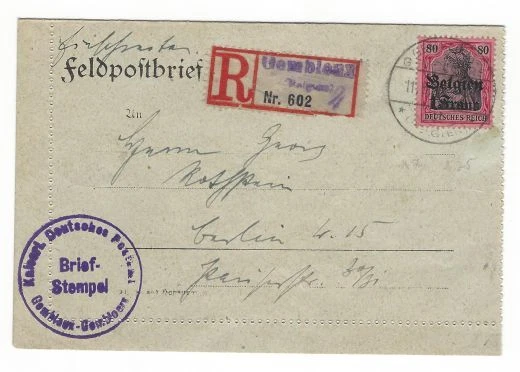 Einschreiben
Feldpostbrief
R
Gembloux
(Belgien)
Nr. 602
4
80 80
Belgien
1 Franc
DEUTSCHES REICH
An
Herrn Georg
Rothstein
Berlin W. 15
Kaiserl. Deutsches Postamt
Brief-
Stempel
Gembloux-Gembloers